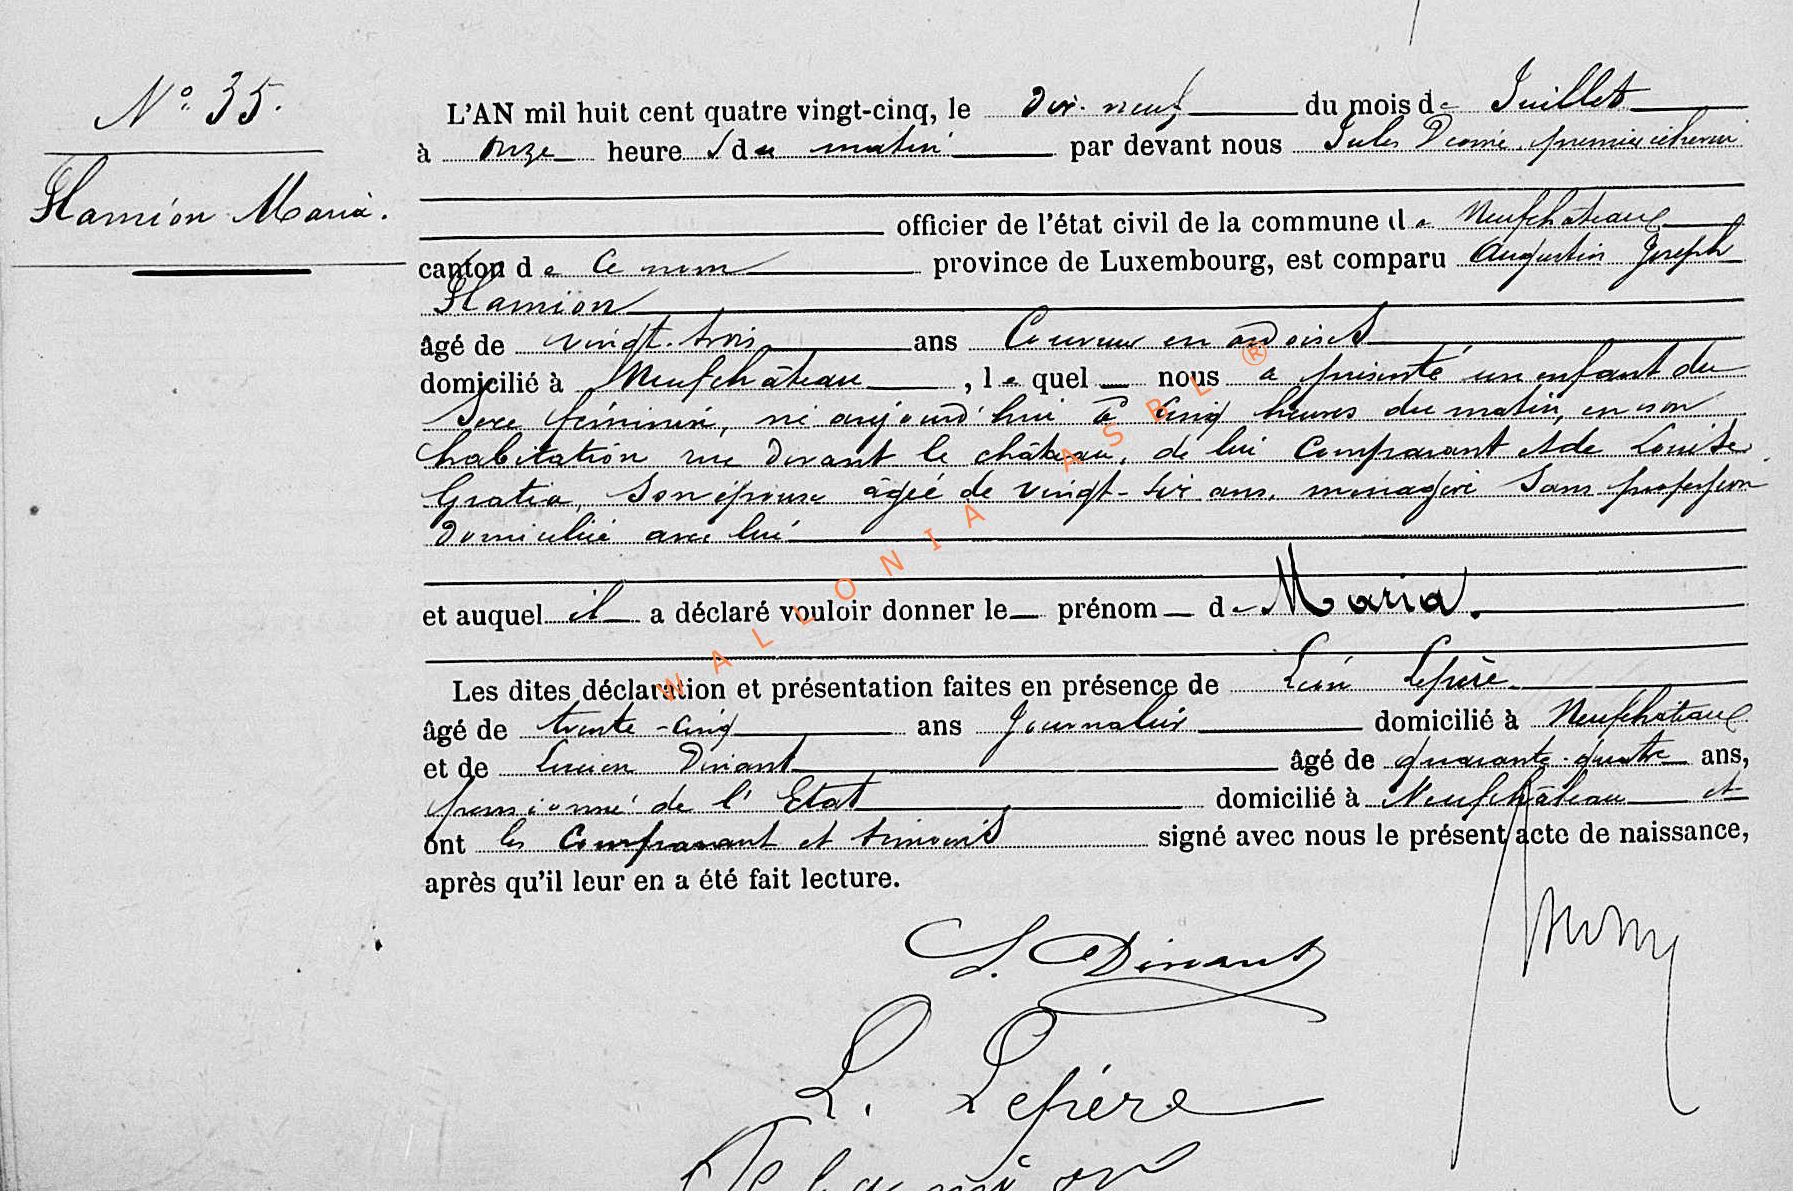 N° 35.
Flamion Maria.
L'AN mil huit cent quatre vingt-cinq, le dix-neuf du mois de Juillet
à onze heures du matin par devant nous Jules premier échevin
officier de l'état civil de la commune de Neufchâteau
canton de Ce nom province de Luxembourg, est comparu Augustin Joseph
Flamion
âgé de vingt-trois ans Couvreur en ardoises
domicilié à Neufchâteau, lequel nous a présenté un enfant du
Sexe féminin, né aujourd'hui à Cinq heures du matin, en son
habitation rue devant le château, de lui Comparant et de Louise
Gratia, Son épouse âgée de vingt-six ans, ménagère Sans profession
domiciliée avec lui
et auquel il a déclaré vouloir donner le prénom de Maria.
Les dites déclaration et présentation faites en présence de Léon Lepère
âgé de trente-cinq ans Journalier domicilié à Neufchâteau
et de Lucien Dinant âgé de quarante-quatre ans,
pensionné de l'Etat domicilié à Neufchâteau et
ont les Comparant et témoins signé avec nous le présent acte de naissance,
après qu'il leur en a été fait lecture.
L. Dinant
L. Lepère
Flamion
WALLONIA ASBL ®